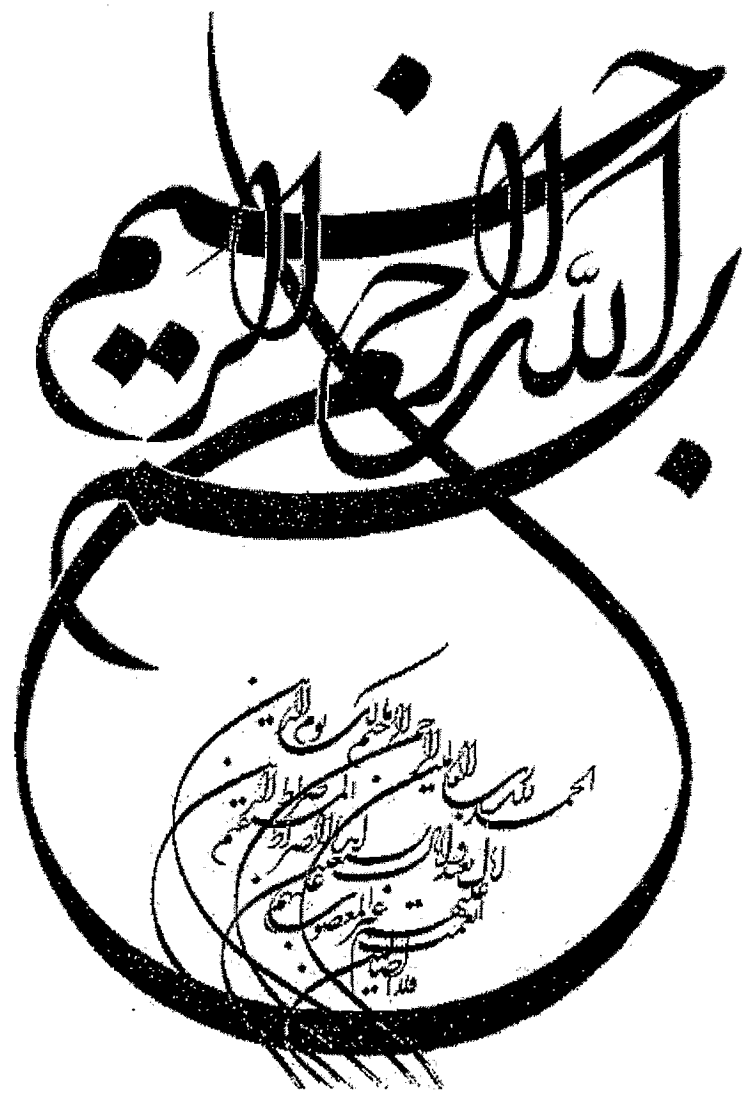 بسم الله الرحمن الرحيم
الحمد لله رب العالمين الرحمن الرحيم مالك يوم الدين
اياك نعبد واياك نستعين اهدنا الصراط المستقيم صراط الذين
انعمت عليهم غير المغضوب عليهم
ولا الضالين